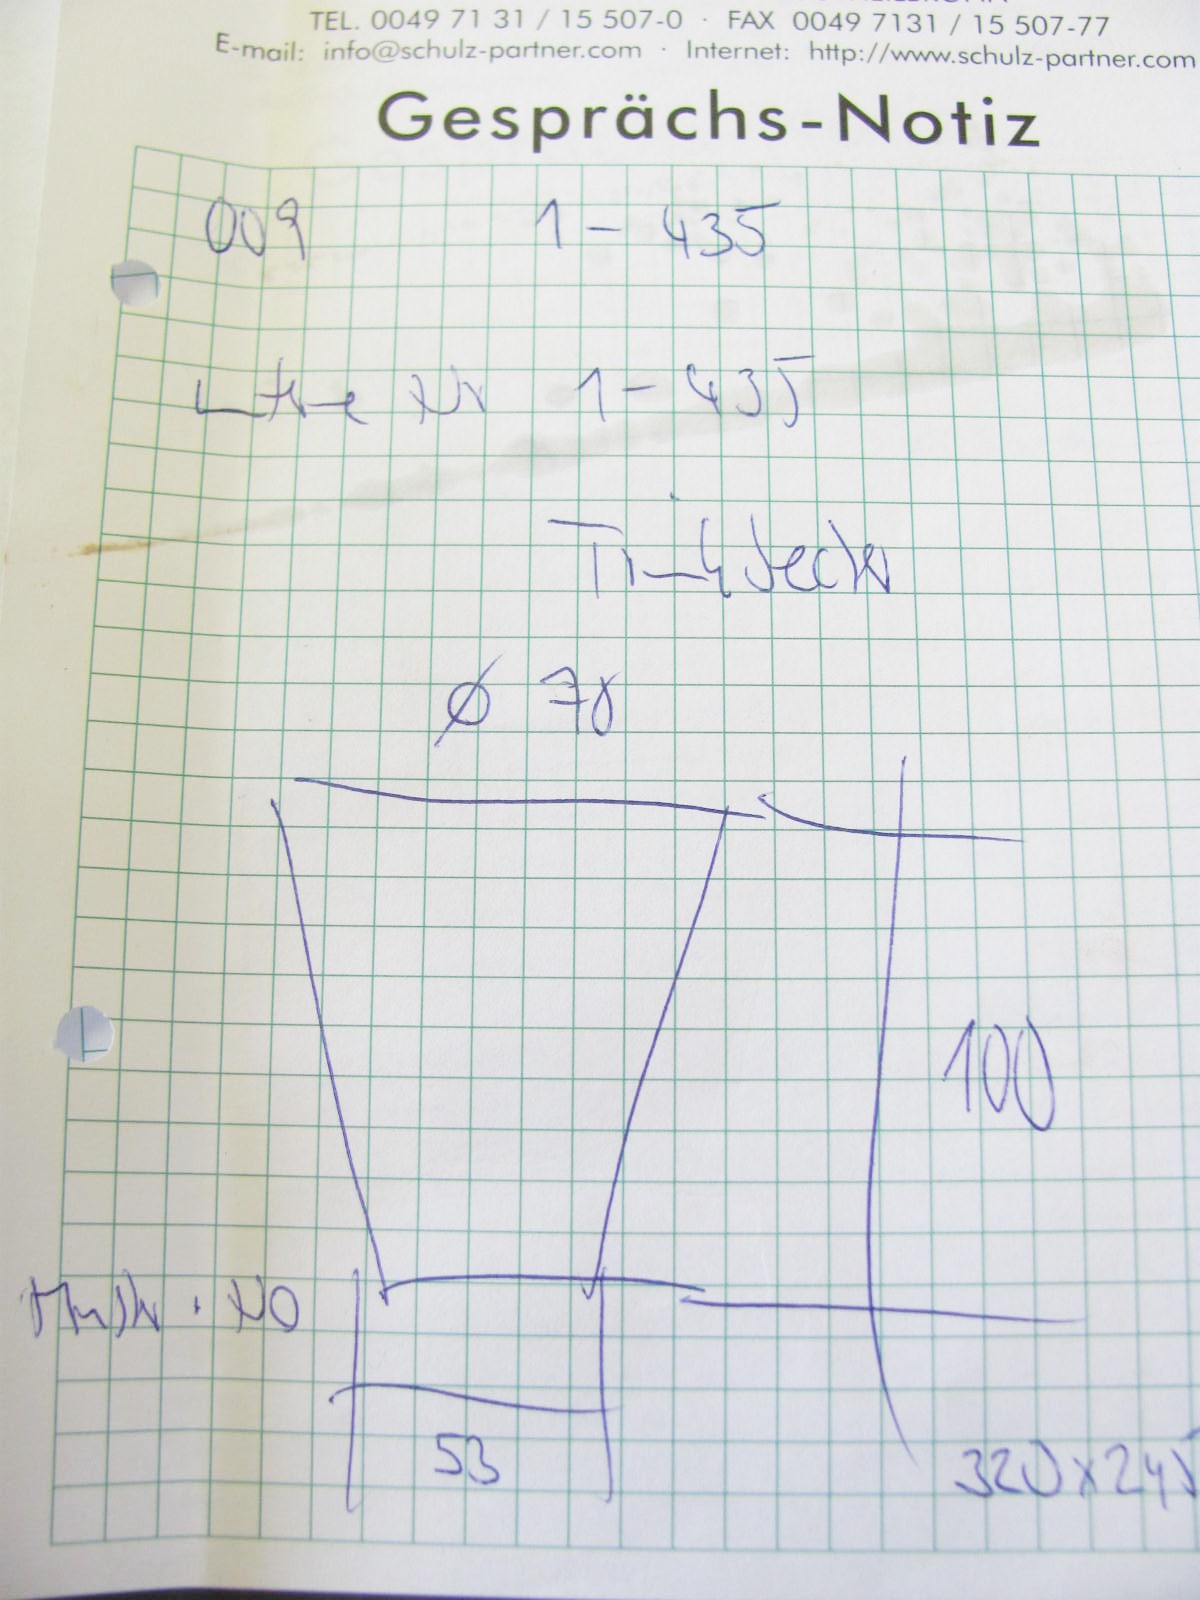 TEL. 0049 71 31 / 15 507-0 · FAX 0049 7131 / 15 507-77
E-mail: info@schulz-partner.com · Internet: http://www.schulz-partner.com
Gesprächs-Notiz
009 1 - 435
Nr 1 - 435
Trinkbecher
Ø 78
100
NO
53
320x245